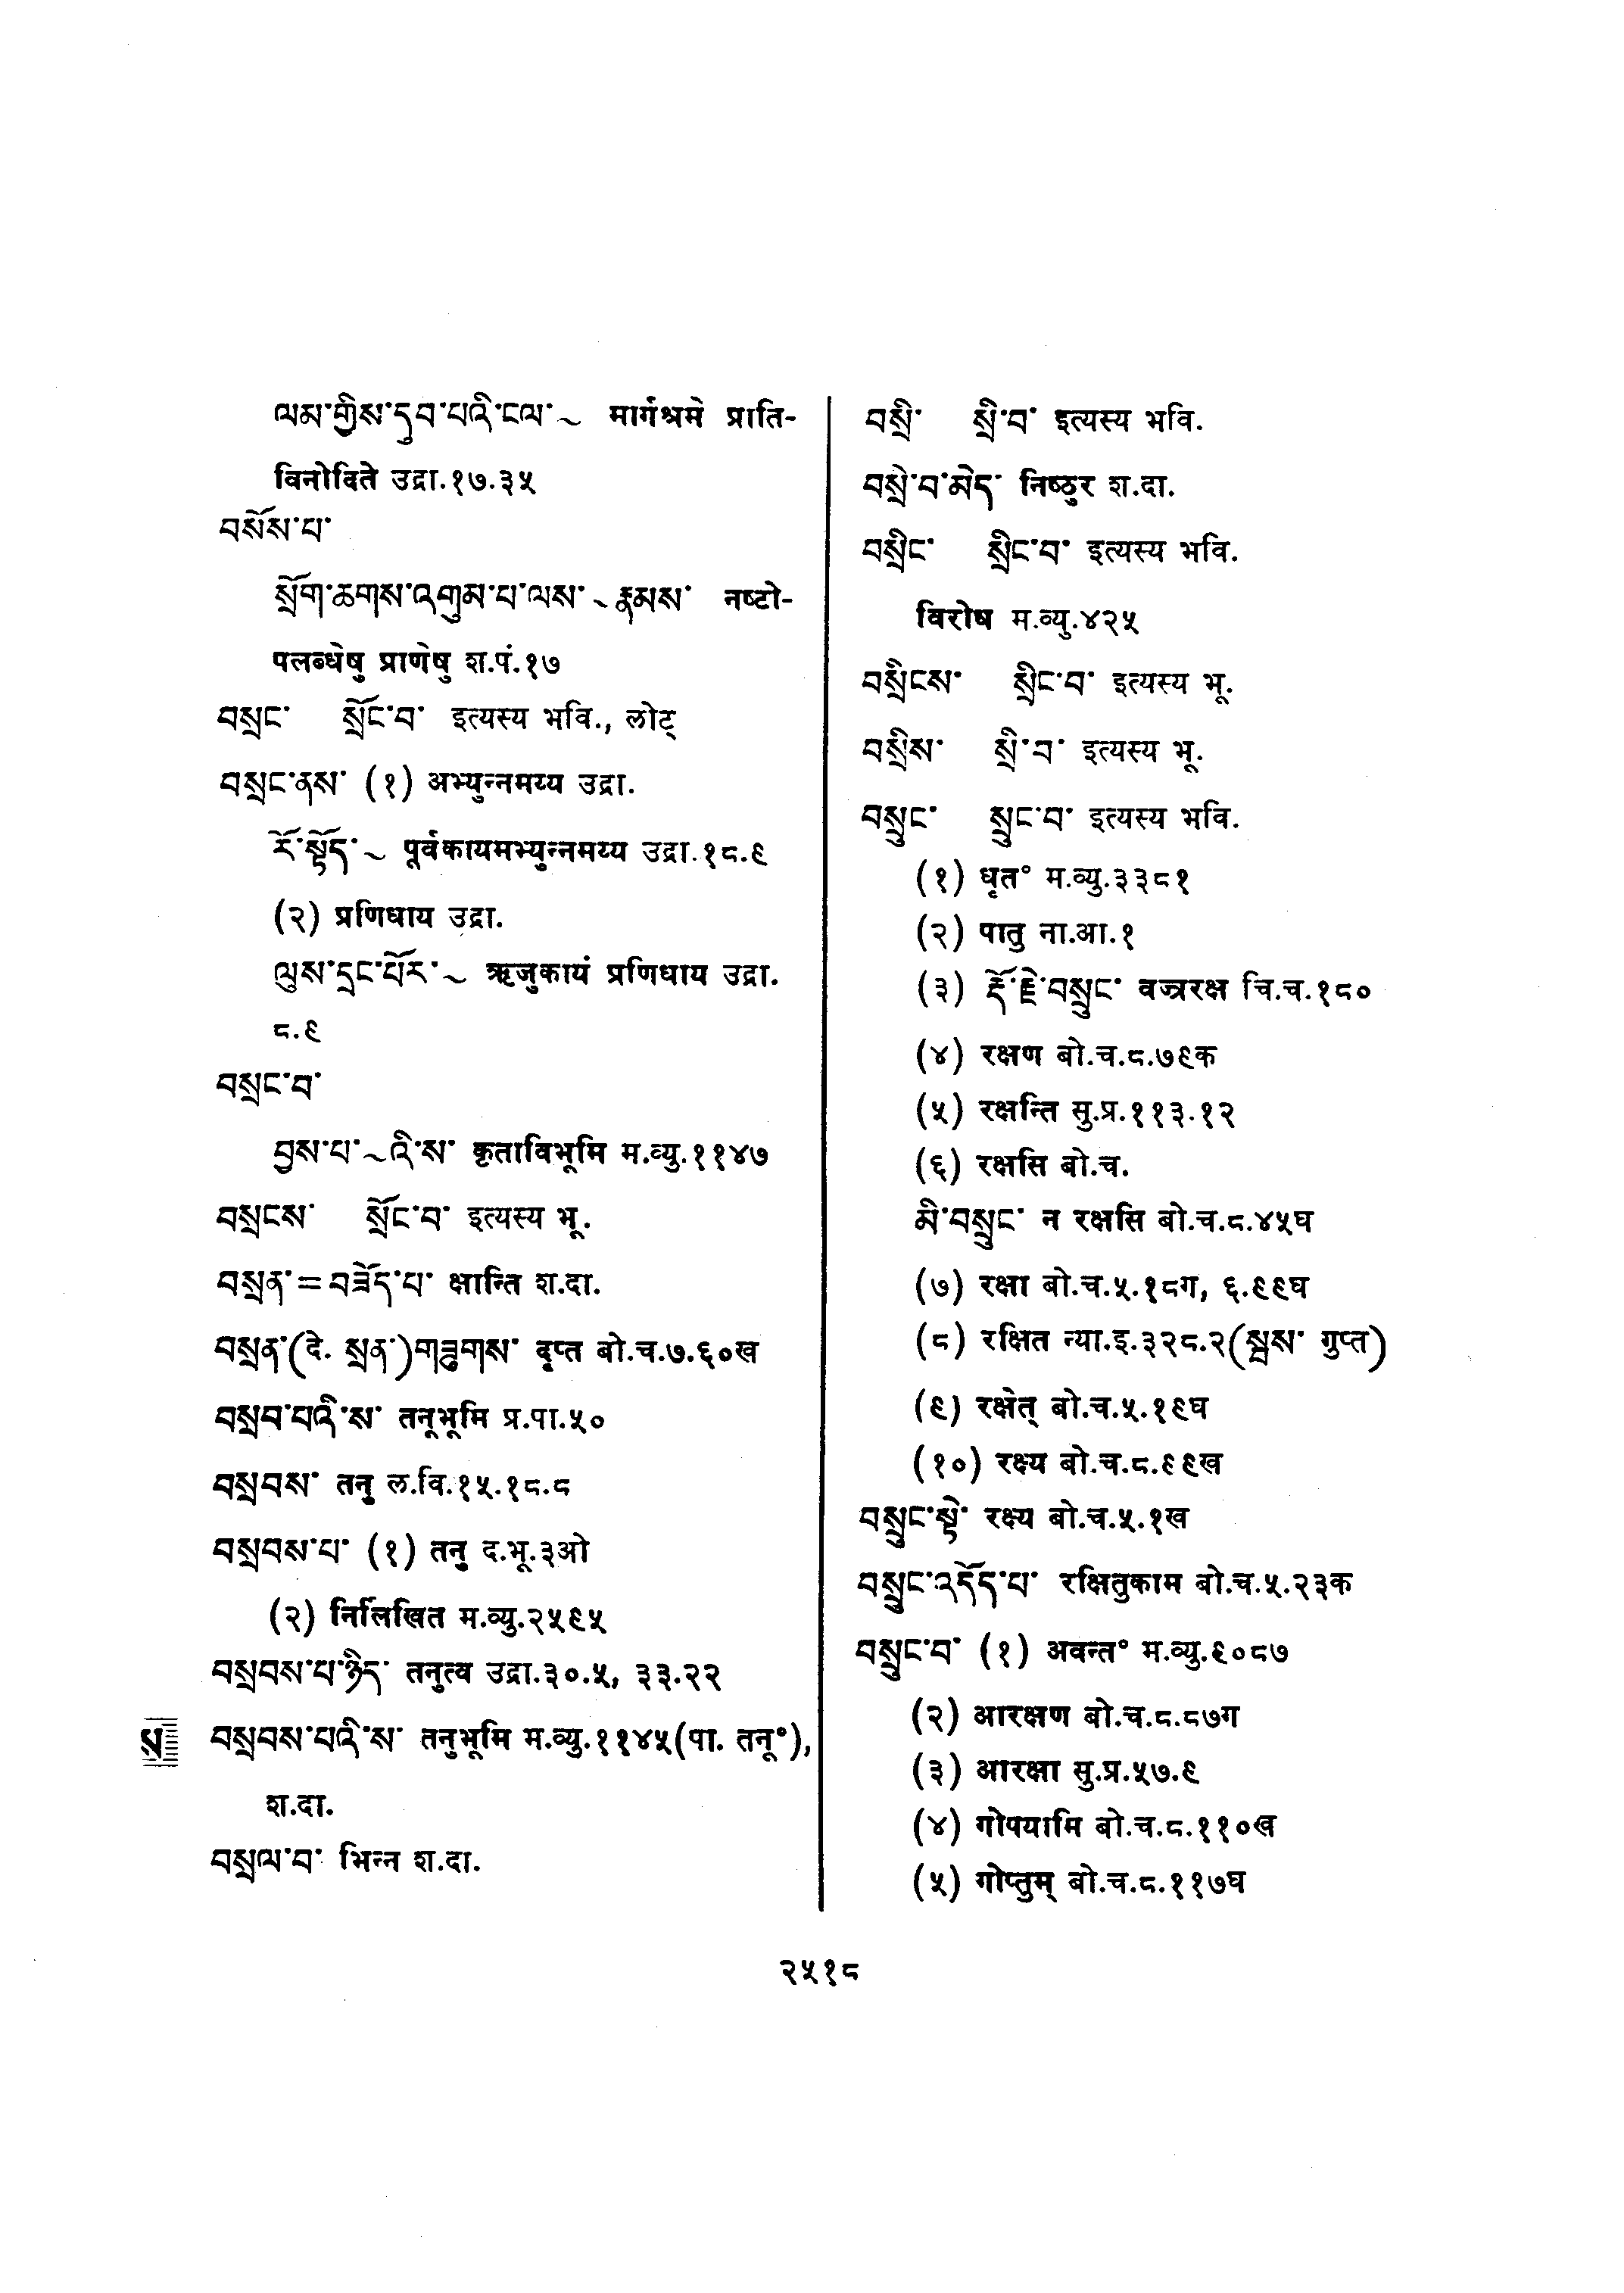 ལམ་གྱིས་དུབ་པའི་ངལ་~ मार्गश्रमे प्राति-
विनोदिते उद्रा.१७.३५
བསོས་པ་
སྲོག་ཆགས་འགུམ་པ་ལས་~རྣམས་ नष्टो-
पलब्धेषु प्राणेषु श.पं.१७
བསྲང་ སྲོང་བ་ इत्यस्य भवि., लोट्
བསྲང་ནས་ (१) अभ्युन्नमय्य उद्रा.
རོ་སྟོད་~ पूर्वकायमभ्युन्नमय्य उद्रा.१८.९
(२) प्रणिधाय उद्रा.
ལུས་དྲང་པོར་~ ऋजुकायं प्रणिधाय उद्रा.
८.९
བསྲང་བ་
བྱས་པ་~འི་ས་ कृताविभूमि म.व्यु.११४७
བསྲངས་ སྲོང་བ་ इत्यस्य भू.
བསྲན་=བཟོད་པ་ क्षान्ति श.दा.
བསྲན་(दे. སྲན་)གཟུགས་ दृप्त बो.च.७.६०ख
བསྲབ་པའི་ས་ तनूभूमि प्र.पा.५०
བསྲབས་ तनु ल.वि.१५.१८.८
བསྲབས་པ་ (१) तनु द.भू.३ओ
(२) निर्लिखित म.व्यु.२५९५
བསྲབས་པ་ཉིད་ तनुत्व उद्रा.३०.५, ३३.२२
ས
བསྲབས་པའི་ས་ तनुभूमि म.व्यु.११४५(पा. तनू°),
श.दा.
བསྲལ་བ་ भिन्न श.दा.
བསྲི་ སྲི་བ་ इत्यस्य भवि.
བསྲེ་བ་མེད་ निष्ठुर श.दा.
བསྲིང་ སྲིང་བ་ इत्यस्य भवि.
विरोष म.व्यु.४२५
བསྲིངས་ སྲིང་བ་ इत्यस्य भू.
བསྲིས་ སྲི་བ་ इत्यस्य भू.
བསྲུང་ སྲུང་བ་ इत्यस्य भवि.
(१) धृत° म.व्यु.३३८१
(२) पातु ना.आ.१
(३) རྡོ་རྗེ་བསྲུང་ वज्ररक्ष चि.च.१८०
(४) रक्षण बो.च.८.७९क
(५) रक्षन्ति सु.प्र.११३.१२
(६) रक्षसि बो.च.
མི་བསྲུང་ न रक्षसि बो.च.८.४५घ
(७) रक्षा बो.च.५.१८ग, ६.९९घ
(८) रक्षित न्या.इ.३२८.२(སྦས་ गुप्त)
(९) रक्षेत् बो.च.५.१९घ
(१०) रक्ष्य बो.च.८.९९ख
བསྲུང་སྟེ་ रक्ष्य बो.च.५.१ख
བསྲུང་འདོད་པ་ रक्षितुकाम बो.च.५.२३क
བསྲུང་བ་ (१) अवन्त° म.व्यु.९०८७
(२) आरक्षण बो.च.८.८७ग
(३) आरक्षा सु.प्र.५७.९
(४) गोपयामि बो.च.८.११०ख
(५) गोप्तुम् बो.च.८.११७घ
२५१८